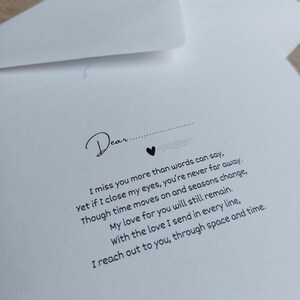 Dear........................
I miss you more than words can say,
Yet if I close my eyes, you're never far away.
Though time moves on and seasons change,
My love for you will still remain.
With the love I send in every line,
I reach out to you, through space and time.